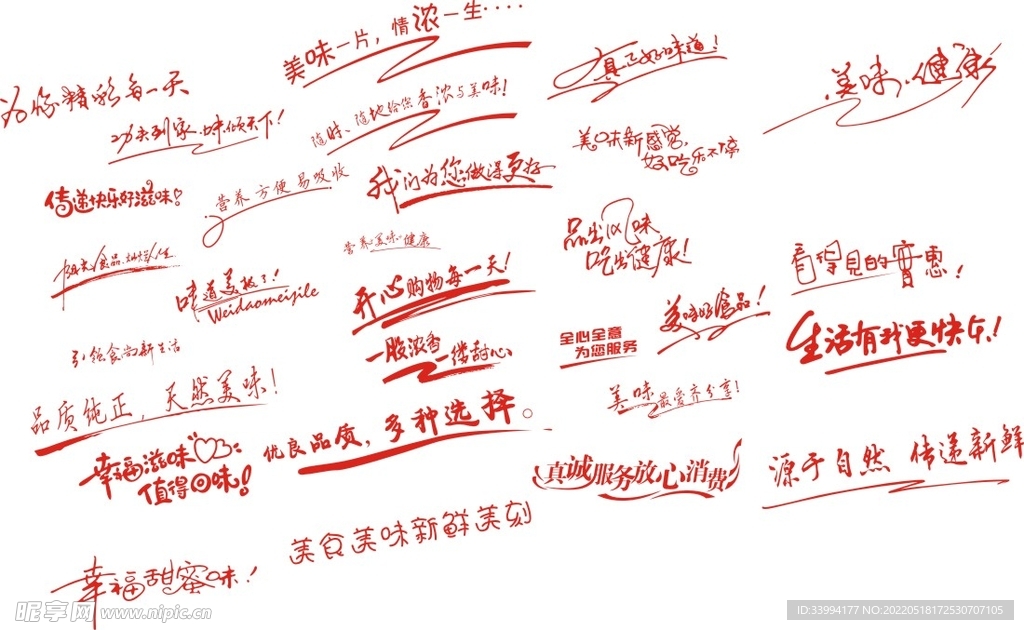 美味一片，情浓一生····
为您精彩每一天
功夫到家.味倾天下！
随时、随地给您香浓与美味！
真正好味道！
美味.健康
美味新感觉，
好吃乐不停
传递快乐好滋味！
营养方便易吸收
我们为您做得更好
营养美味健康
品出风味
吃出健康！
看得见的實惠！
阳光食品.灿烂人生
味道美极了！
Weidaomeijile
开心购物每一天！
美味好食品！
全心全意
为您服务
生活有我更快乐！
引领食尚新生活
一股浓香
一缕甜心
品质纯正，天然美味！
美味最爱齐分享！
优良品质，多种选择。
幸福滋味
值得回味！
真诚服务放心消费
源于自然 传递新鲜
美食美味新鲜美刻
幸福甜蜜味！
昵享网
www.nipic.cn
ID:33994177 NO:20220518172530707105